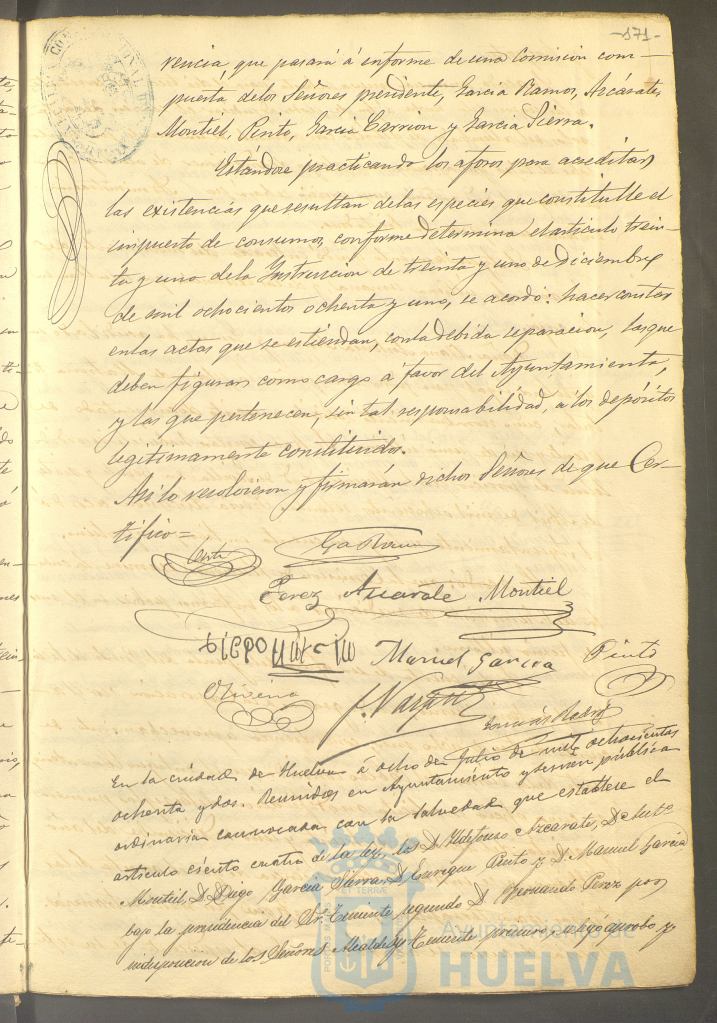 -171-
rencia, que pasará á informe de una Comision com-
puesta delos Señores presidente, Garcia Ramos, Azcárate,
Montiel, Pinto, Garcia Carrion y Garcia Sierra.
Estándose practicando los aforos para acreditar
las existencias que resultan delas especies que constitulle el
impuesto de consumos, conforme determina el articulo trein-
ta y uno dela Instruccion de treinta y uno de Diciembre
de mil ochocientos ochenta y uno, se acordó: hacer constar
en las actas que se estiendan, con la debida separacion, las que
deben figurar como cargo á favor del Ayuntamiento,
y las que pertenecen, sin tal responsabilidad, á los depósitos
legitimamente constituidos.
Asi lo resolvieron y firmarán dichos Señores de que Cer-
tifico=
Perez Azcarate Montiel
Manuel Garcia Pinto
En la ciudad de Huelva á ocho de Julio de mil ochocientos
ochenta y dos. Reunidos en Ayuntamiento y sesion pública
ordinaria convocada con la salvedad que establese el
articulo ciento cuatro de la ley, los D. Ildefonso Azcarate, D.
Montiel, D. Diego Garcia Sierra, D. Enrique Pinto y D. Manuel Garcia
bajo la presidencia del Sr. Teniente segundo D. Fernando Perez por
indisposicion de los Señores Alcalde y Teniente primero, se leyó aprobó y
Ayuntamiento de
HUELVA